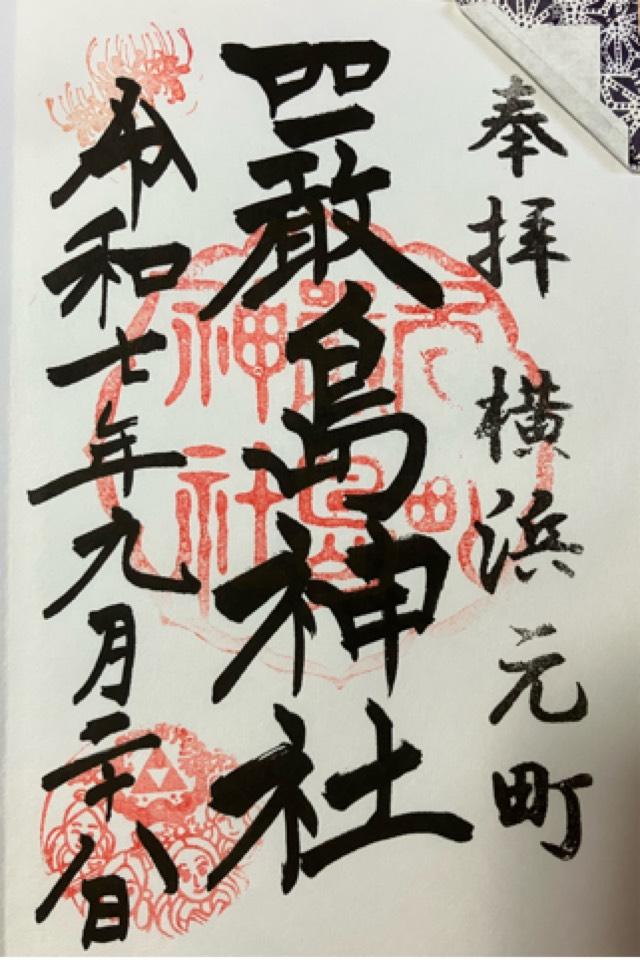 奉拝 横浜元町
嚴島神社
令和七年九月二十八日
元町
嚴島
神社